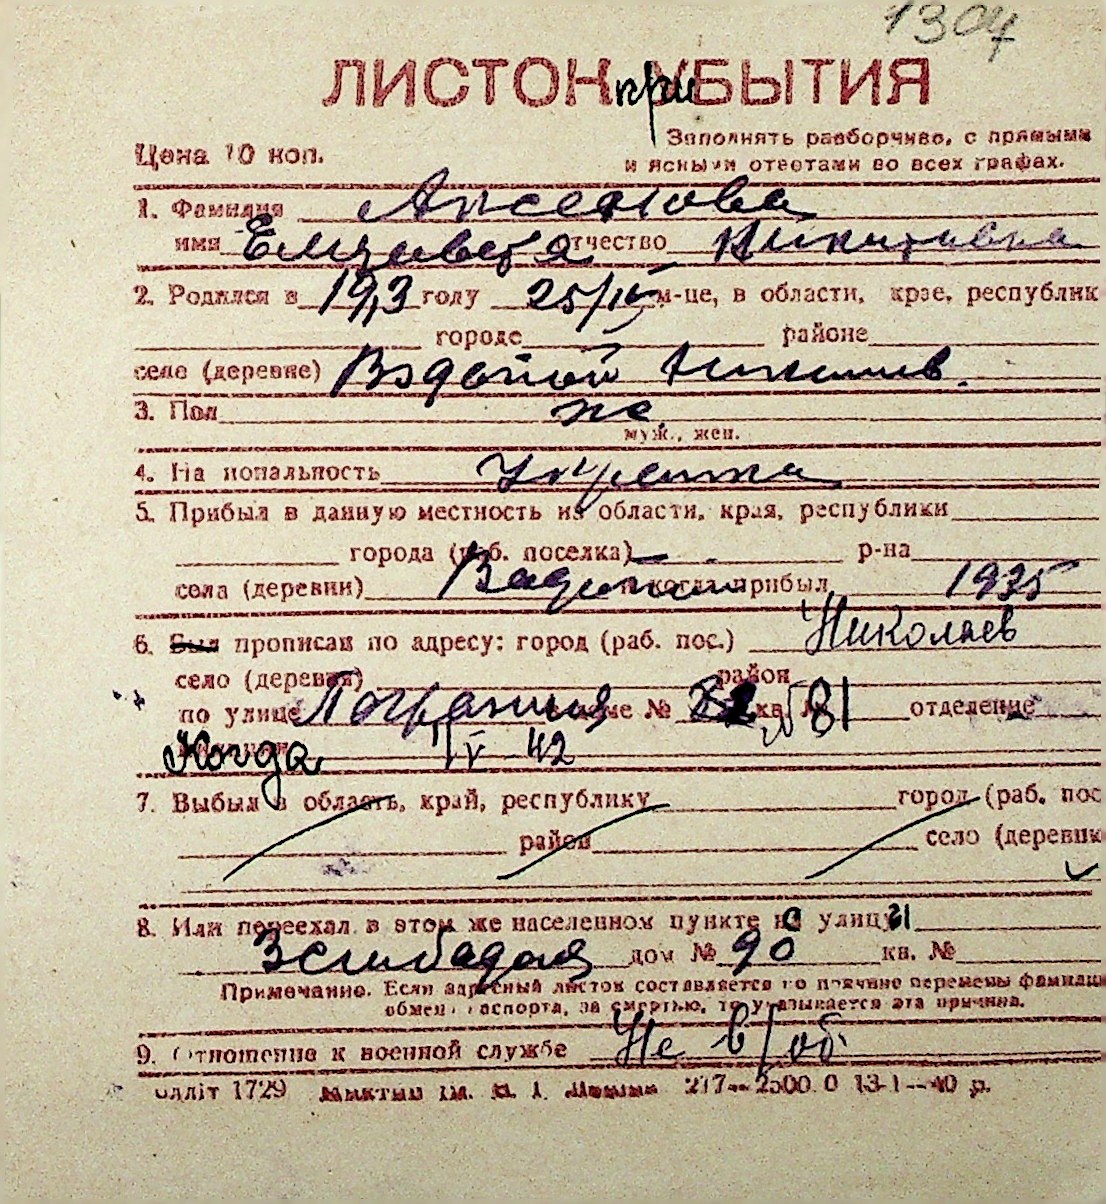 1304
ЛИСТОК при УБЫТИЯ
Цена 10 коп.
Заполнять разборчиво, с прямыми
и ясными ответами во всех графах.
1. Фамилия Аксенова
имя Елизавета отчество Никитовна
2. Родился в 1913 году 25/IV м-це, в области, крае, республик
городе районе
село (деревне) Водопой Николаев.
3. Пол же
муж., жен.
4. Национальность Украинка
5. Прибыл в данную местность из области, края, республики
города (раб. поселка) р-на
села (деревни) Вадопой и когда прибыл 1935
6. Был прописан по адресу: город (раб. пос.) Николаев
село (деревня) район
по улице Погранич доме № кв. № 81 отделение
Когда 1 V - 42
7. Выбыл в область, край, республику город (раб. пос
район село (деревни
8. Или переехал в этом же населенном пункте на с улицу ы
дом № 90 кв. №
Примечание. Если адресный листок составляется по причине перемены фамилии
обмена паспорта, за смертью, то указывается эта причина.
9. Отношение к военной службе Не в/об
1729 217—2500.0 13-1—40 р.